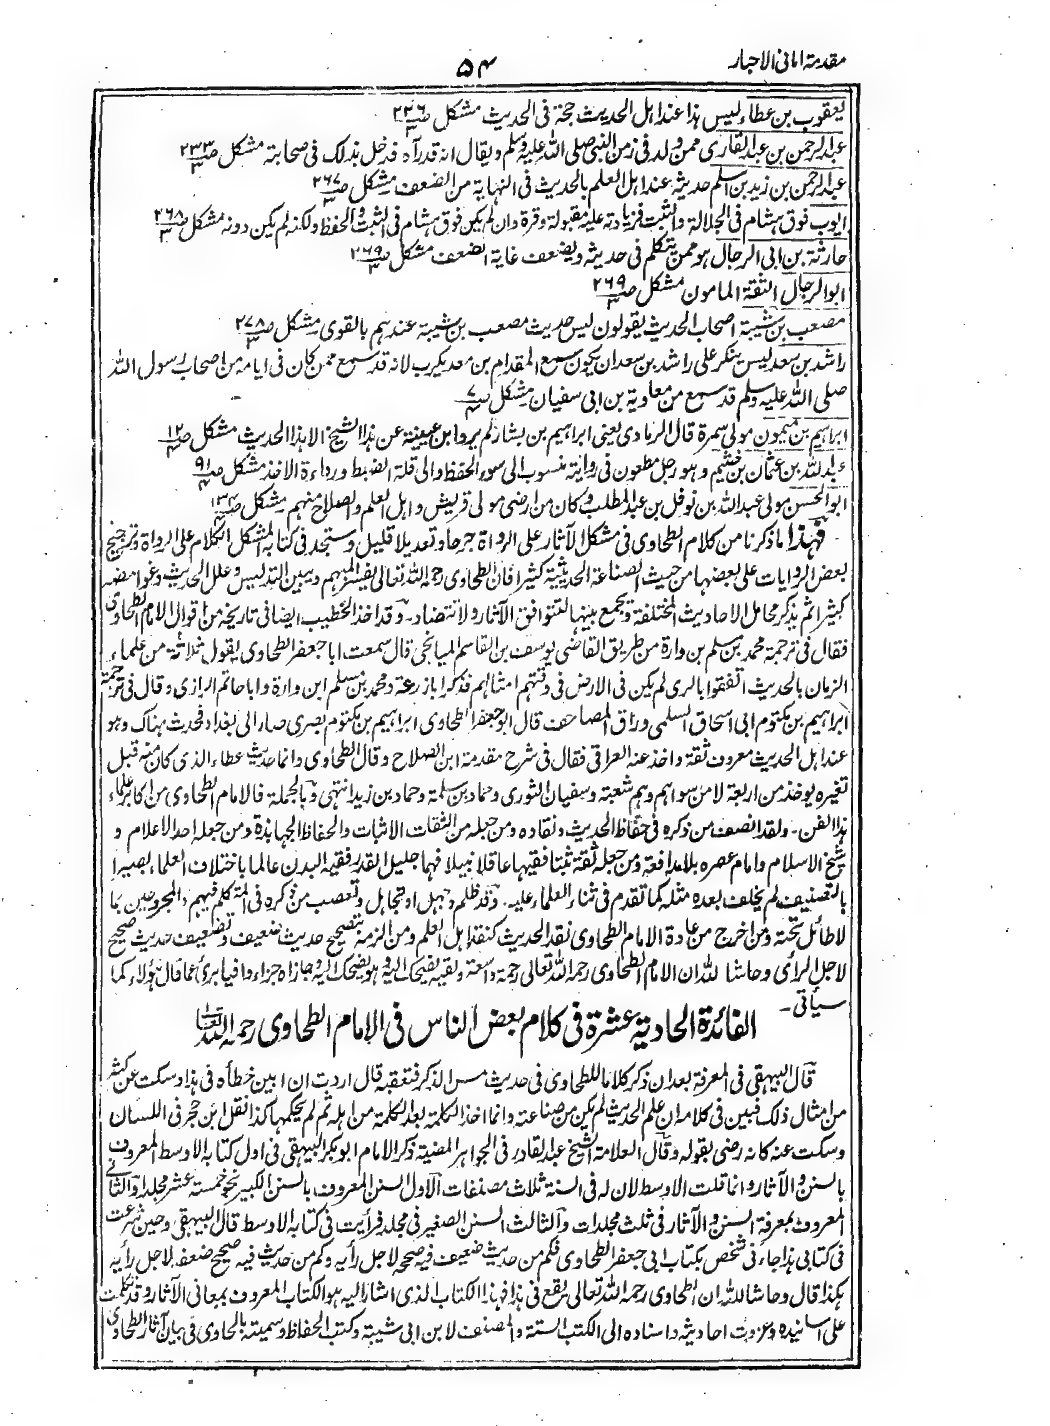 مقدمة امانی الاحبار
۵۴
یعقوب بن عطاء لیس هذا عند اهل الحدیث حجة فی الحدیث مشکل ص۲۲۶ ۳
عبد الرحمن بن عبد القاری ممن ولد فی زمن النبی صلی الله علیه وسلم ویقال انه قد رآه فدخل بذلک فی صحابته مشکل ص۲۳۳ ۳
عبد الرحمن بن زید بن اسلم حدیثه عند اهل العلم بالحدیث فی النهایة من الضعف مشکل ص۲۶۷ ۳
ایوب فوق هشام فی الجلالة والثبت فزیادته علیه مقبولة وقرة وان لم یکن فوق هشام فی الثبت والحفظ ولکنه لم یکن دونه مشکل ص۲۶۸ ۳
حارثة بن ابی الرجال هو ممن یتکلم فی حدیثه ویضعف غایة الضعف مشکل ص۲۶۹ ۳
ابو الرجال الثقة المامون مشکل ص۲۶۹ ۳
مصعب بن شیبة اصحاب الحدیث یقولون لیس حدیث مصعب بن شیبة عندهم بالقوی مشکل ص۲۷۸ ۳
راشد بن سعد لیس ینکر علی راشد بن سعد ان یکون سمع المقدام بن معدیکرب لانه قد سمع ممن کان فی ایامه من اصحاب رسول الله
صلی الله علیه وسلم قد سمع من معاویة بن ابی سفیان مشکل ص۷ ۴
ابراهیم بن میمون مولی سمرة قال الرمادی یعنی ابراهیم بن بشار لم یرو ابن عیینة عن هذا الشیخ الا هذا الحدیث مشکل ص۱۲ ۴
عبد الله بن عثمان بن خثیم وهو رجل مطعون فی روایته منسوب الی سوء الحفظ والی قلة الضبط ورداءة الاخذ مشکل ص۹۱ ۴
ابو الحسن مولی عبد الله بن نوفل بن عبد المطلب وکان من ارضی مولی قریش واهل العلم والصلاح منهم مشکل ص۱۳۴
فهذا ما ذکرنا من کلام الطحاوی فی مشکل الآثار علی الرواة جرحا وتعدیلا قلیل وستجد فی کتابه المشکل الکلام علی الرواة وترجیح
بعض الروایات علی بعضها من حیث الصناعة الحدیثیة کثیرا فان الطحاوی رحمه الله تعالی یفسر المبهم ویبین التدلیس وعلل الحدیث وغوامضه
کثیرا ثم یذکر محامل الاحادیث المختلفة ویجمع بینها لتتوافق الآثار ولا تتضاد ـ وقد اخذ الخطیب ایضا فی تاریخه من اقوال الامام الطحاوی
فقال فی ترجمة محمد بن مسلم بن وارة من طریق القاضی یوسف بن القاسم المیانجی قال سمعت ابا جعفر الطحاوی یقول ثلاثة من علماء
الزمان بالحدیث اتفقوا بالری لم یکن فی الارض فی وقتهم امثالهم فذکر ابا زرعة ومحمد بن مسلم ابن وارة وابا حاتم الرازی وقال فی ترجمة
ابراهیم بن مکتوم ابی اسحاق السلمی وراق المصاحف قال ابو جعفر الطحاوی ابراهیم بن مکتوم بصری صار الی بغداد فحدث هناک وهو
عند اهل الحدیث معروف ثقة واخذ عنه العراقی فقال فی شرح مقدمة ابن الصلاح وقال الطحاوی وانما حدیث عطاء الذی کان منه قبل
تغیره یوخذ من اربعة لا من سواهم وهم شعبة وسفیان الثوری وحماد بن سلمة وحماد بن زید انتهی وبالجملة فالامام الطحاوی من اکابر علماء
هذا الفن ـ ولقد انصف من ذکره فی حفاظ الحدیث ونقاده ومن جعله من الثقات الاثبات والحفاظ الجهابذة ومن جعله احد الاعلام و
شیخ الاسلام وامام عصره بلا مدافعة ومن جعله ثقة ثبتا فقیها عاقلا نبیلا فهما جلیل القدر فقیه البدن عالما باختلاف العلماء بصیرا
بالتصنیف لم یخلف بعده مثله کما تقدم فی ثناء العلماء علیه ـ وقد ظلم وجهل او تجاهل وتعصب من ذکره فی المتکلم فیهم والمجروحین بما
لا طائل تحته ومن اخرج من عادة الامام الطحاوی نقد الحدیث کنقد اهل العلم ومن الزمه بتصحیح حدیث ضعیف وتضعیف حدیث صحیح
لاجل الرأی وحاشا لله ان الامام الطحاوی رحمه الله تعالی رحمة واسعة ولقیه یضحک الیه وهو یضحک الیه وجازاه جزاء وافیا بریء عما قال هؤلاء کما
سیأتی ـ
الفائدة الحادیة عشرة فی کلام بعض الناس فی الامام الطحاوی رحمه الله تعالی
قال البیهقی فی المعرفة بعد ان ذکر کلاما للطحاوی فی حدیث مس الذکر فتعقبه قال اردت ان ابین خطأه فی هذا وسکت عن کثیر
من امثال ذلک فبین فی کلامه ان علم الحدیث لم یکن من صناعته وانما اخذ الکلمة بعد الکلمة من اهله ثم لم یحکمها کذا نقل ابن حجر فی اللسان
وسکت عنه کانه رضی بقوله وقال العلامة الشیخ عبد القادر فی الجواهر المضیة ذکر الامام ابو بکر البیهقی فی اول کتابه الاوسط المعروف
بالسنن والآثار وانما قلت الاوسط لان له فی السنة ثلاث مصنفات الاول السنن المعروف بالسنن الکبیر نحو خمسة عشر مجلدا والثانی
المعروف بمعرفة السنن والآثار فی ثلث مجلدات والثالث السنن الصغیر فی مجلد فرأیت فی کتابه الاوسط قال البیهقی وحین شرعت
فی کتابی هذا جاءنی شخص بکتاب ابی جعفر الطحاوی فکم من حدیث ضعیف فیه صححه لاجل رأیه وکم من حدیث فیه صحیح ضعفه لاجل رأیه
هکذا قال وحاشا لله ان الطحاوی رحمه الله تعالی یقع فی هذا فهذا الکتاب الذی اشار الیه هو الکتاب المعروف بمعانی الآثار وقد تکلمت
علی اسانیده وعزوت احادیثه واسناده الی الکتب الستة والمصنف لابن ابی شیبة وکتب الحفاظ وسمیته بالحاوی فی بیان آثار الطحاوی